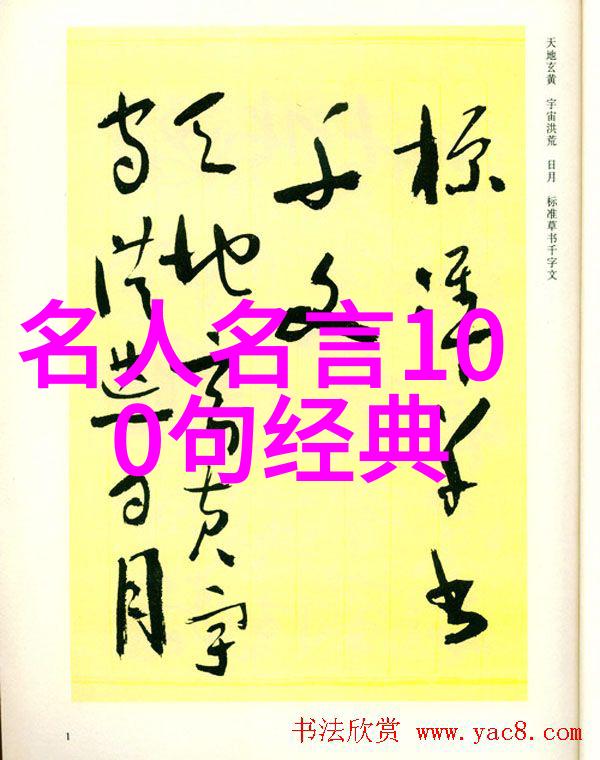 天地玄黄 宇宙洪荒 日月 标准草书千字文
標準草書
千文
天地玄黄宇
宙洪荒日月
名人名言10
0句经典
1
书法欣赏 www.yac8.com